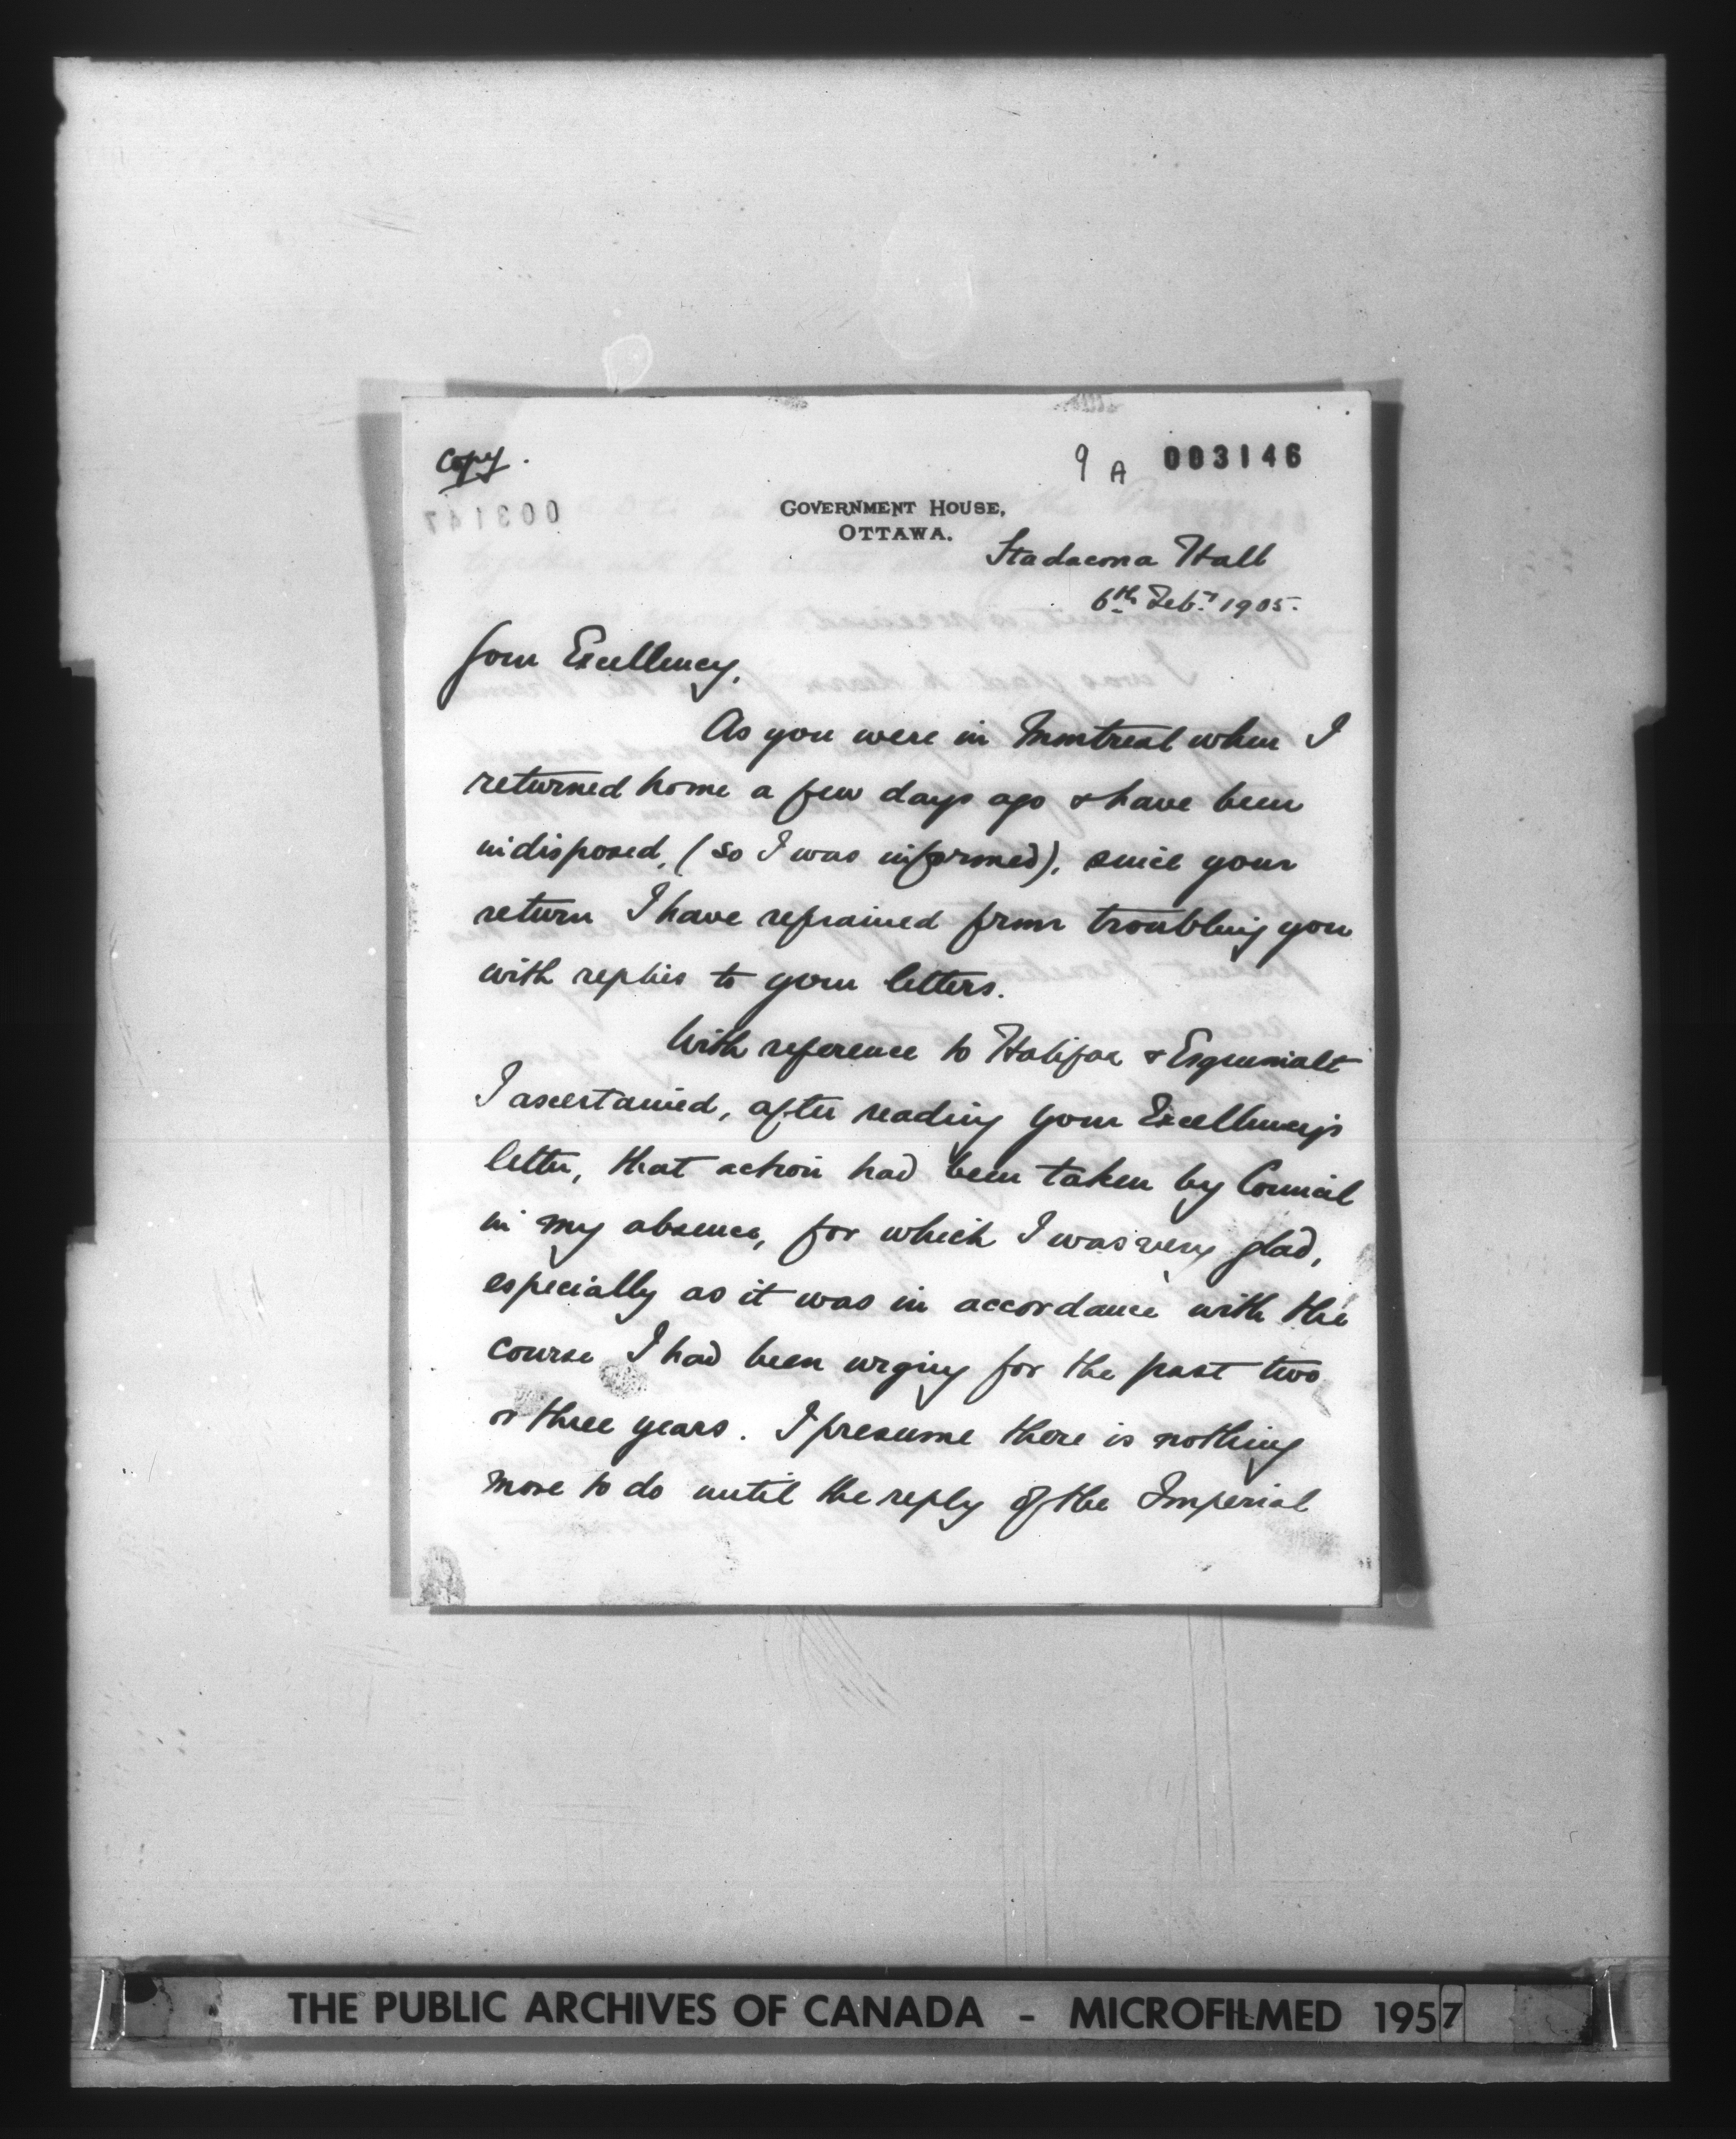 Copy.
9 A 003146
003147
GOVERNMENT HOUSE,
OTTAWA.
Stadacona Hall
6th Feby. 1905.
Your Excellency,
As you were in Montreal when I
returned home a few days ago & have been
indisposed, (so I was informed), since your
return I have refrained from troubling you
with replies to your letters.
With reference to Halifax & Esquimalt
I ascertained, after reading your Excellency's
letter, that action had been taken by Council
in my absence, for which I was very glad,
especially as it was in accordance with the
course I had been urging for the past two
or three years. I presume there is nothing
more to do until the reply of the Imperial
THE PUBLIC ARCHIVES OF CANADA - MICROFILMED 1957